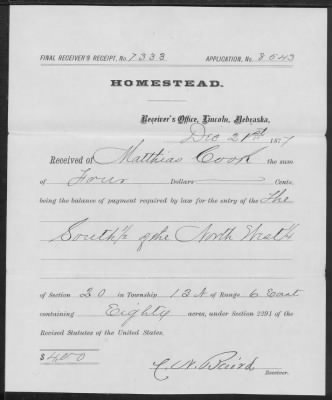 FINAL RECEIVER'S RECEIPT, No. 7333 APPLICATION, No. 8643
HOMESTEAD.
Receiver's Office, Lincoln, Nebraska,
Dec 21st 1877
Received of Matthias Cook the sum
of Four Dollars Cents,
being the balance of payment required by law for the entry of the The
South ½ of the North West ¼
of Section 20 in Township 13 N of Range 6 East
containing Eighty acres, under Section 2291 of the
Revised Statutes of the United States.
$ 4.00
C. N. Baird
Receiver.